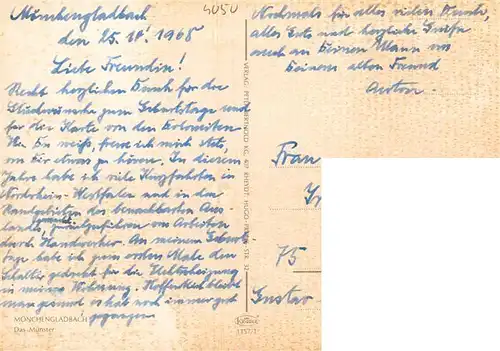 Mönchengladbach
4050
den 25. IX. 1968
Liebe Freundin!
Recht herzlichen Dank für die
Glückwünsche zum Geburtstage und
für die Karte von den Dolomiten
Wie Du weißt, freue ich mich stets,
von Dir etwas zu hören. In diesem
Jahre habe ich viele Kurzfahrten in
Nordrhein-Westfalen und in den
Randgebieten des benachbarten Aus-
landes,
durch Handwerker. An meinem Geburts
tage habe ich zum ersten Male den
Schalter gedreht für die Heizung
in meiner Wohnung. Hoffentlich bleibt
man gesund es hat noch immer gut
gegangen
MÖNCHENGLADBACH
Das Münster
Nochmals für alles vielen Dank,
alles Gute und herzliche Grüße
auch an Deinen Mann von
Deinem alten Freund
Anton
VERLAG
HUGO-
STR. 32
Frau
75
Gustav
Krüger
1157/1